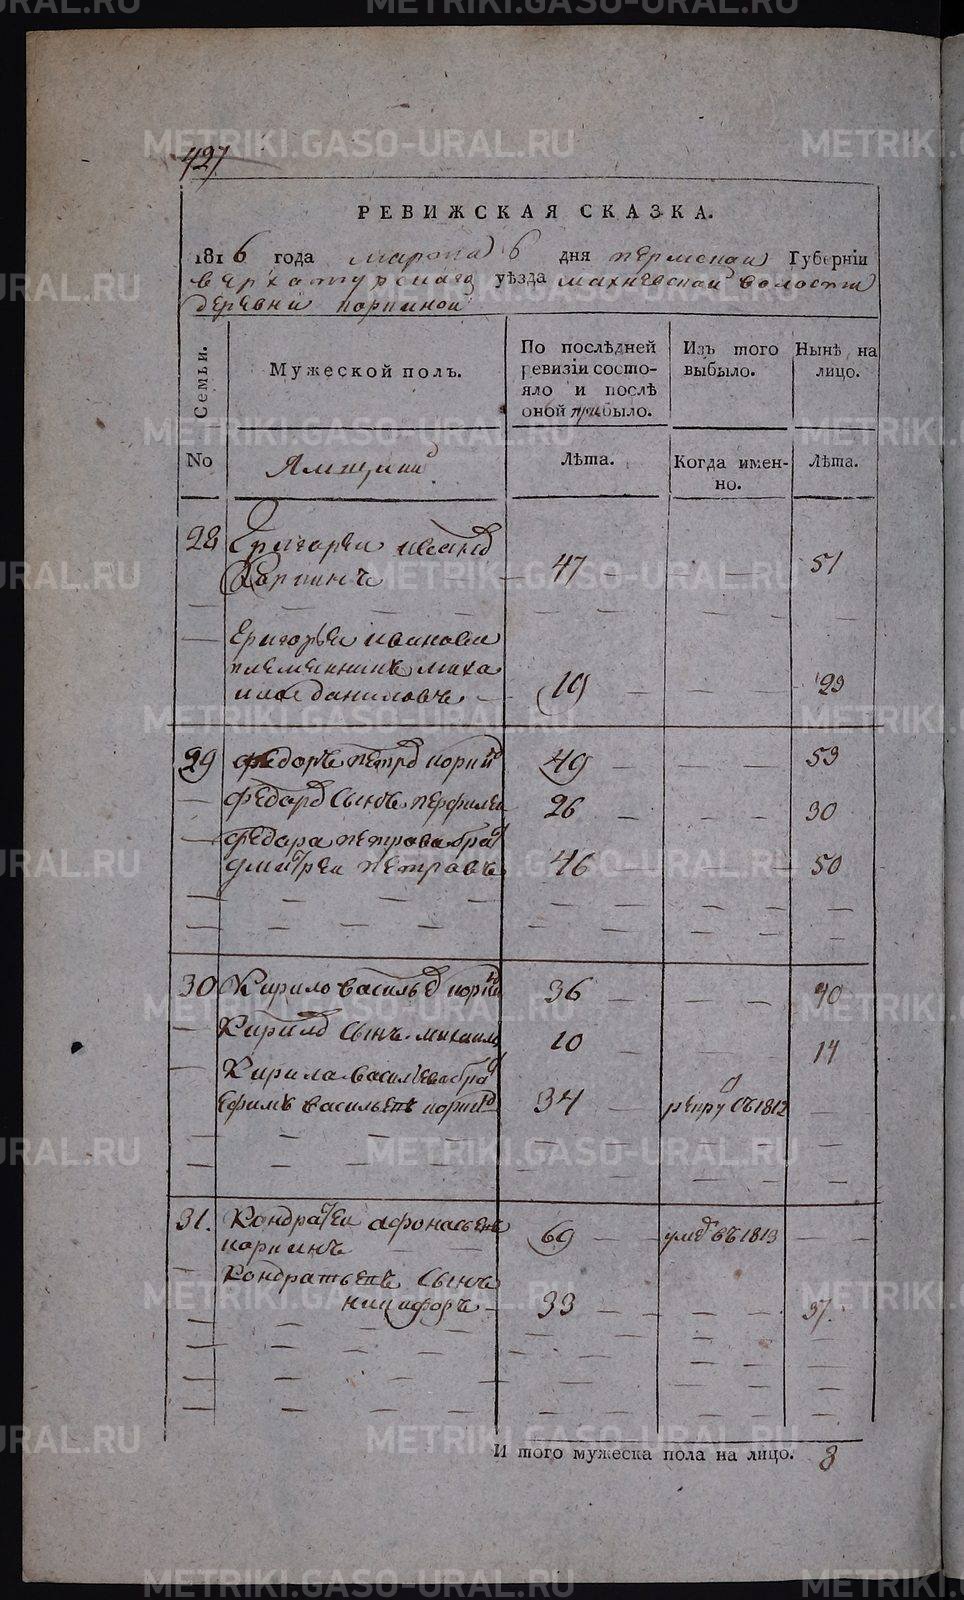 METRIKI.GASO-URAL.RU
427
РЕВИЖСКАЯ СКАЗКА.
1816 года марта 6 дня пермской Губерніи
верхотурского уѣзда махневской волости
деревни корпиной
Семьи.
Мужеской полъ.
По послѣдней ревизіи состояло и послѣ оной прибыло.
Изъ того выбыло.
Нынѣ на лицо.
No
Ямщики
Лѣта.
Когда именно.
Лѣта.
28 Григореи иванов
Корпинъ 47 51
Григорья иванова
племенникъ миха
ило даниловъ 19 23
29 федоръ петров корпин 49 53
федора сынъ перфилеи 26 30
федора петрова брат
дмитреи петровъ 46 50
30 Кирило василев корпин 36 40
Кирила сынъ михаило 10 14
Кирила васильева брат
Ефимъ васильевъ корпин 34 рекру въ 1812
31. Кондратеи афонасьевъ 69 умер въ 1813
корпинъ
Кондратьевъ сынъ
никифоръ 33 37.
И того мужеска пола на лицо. 8